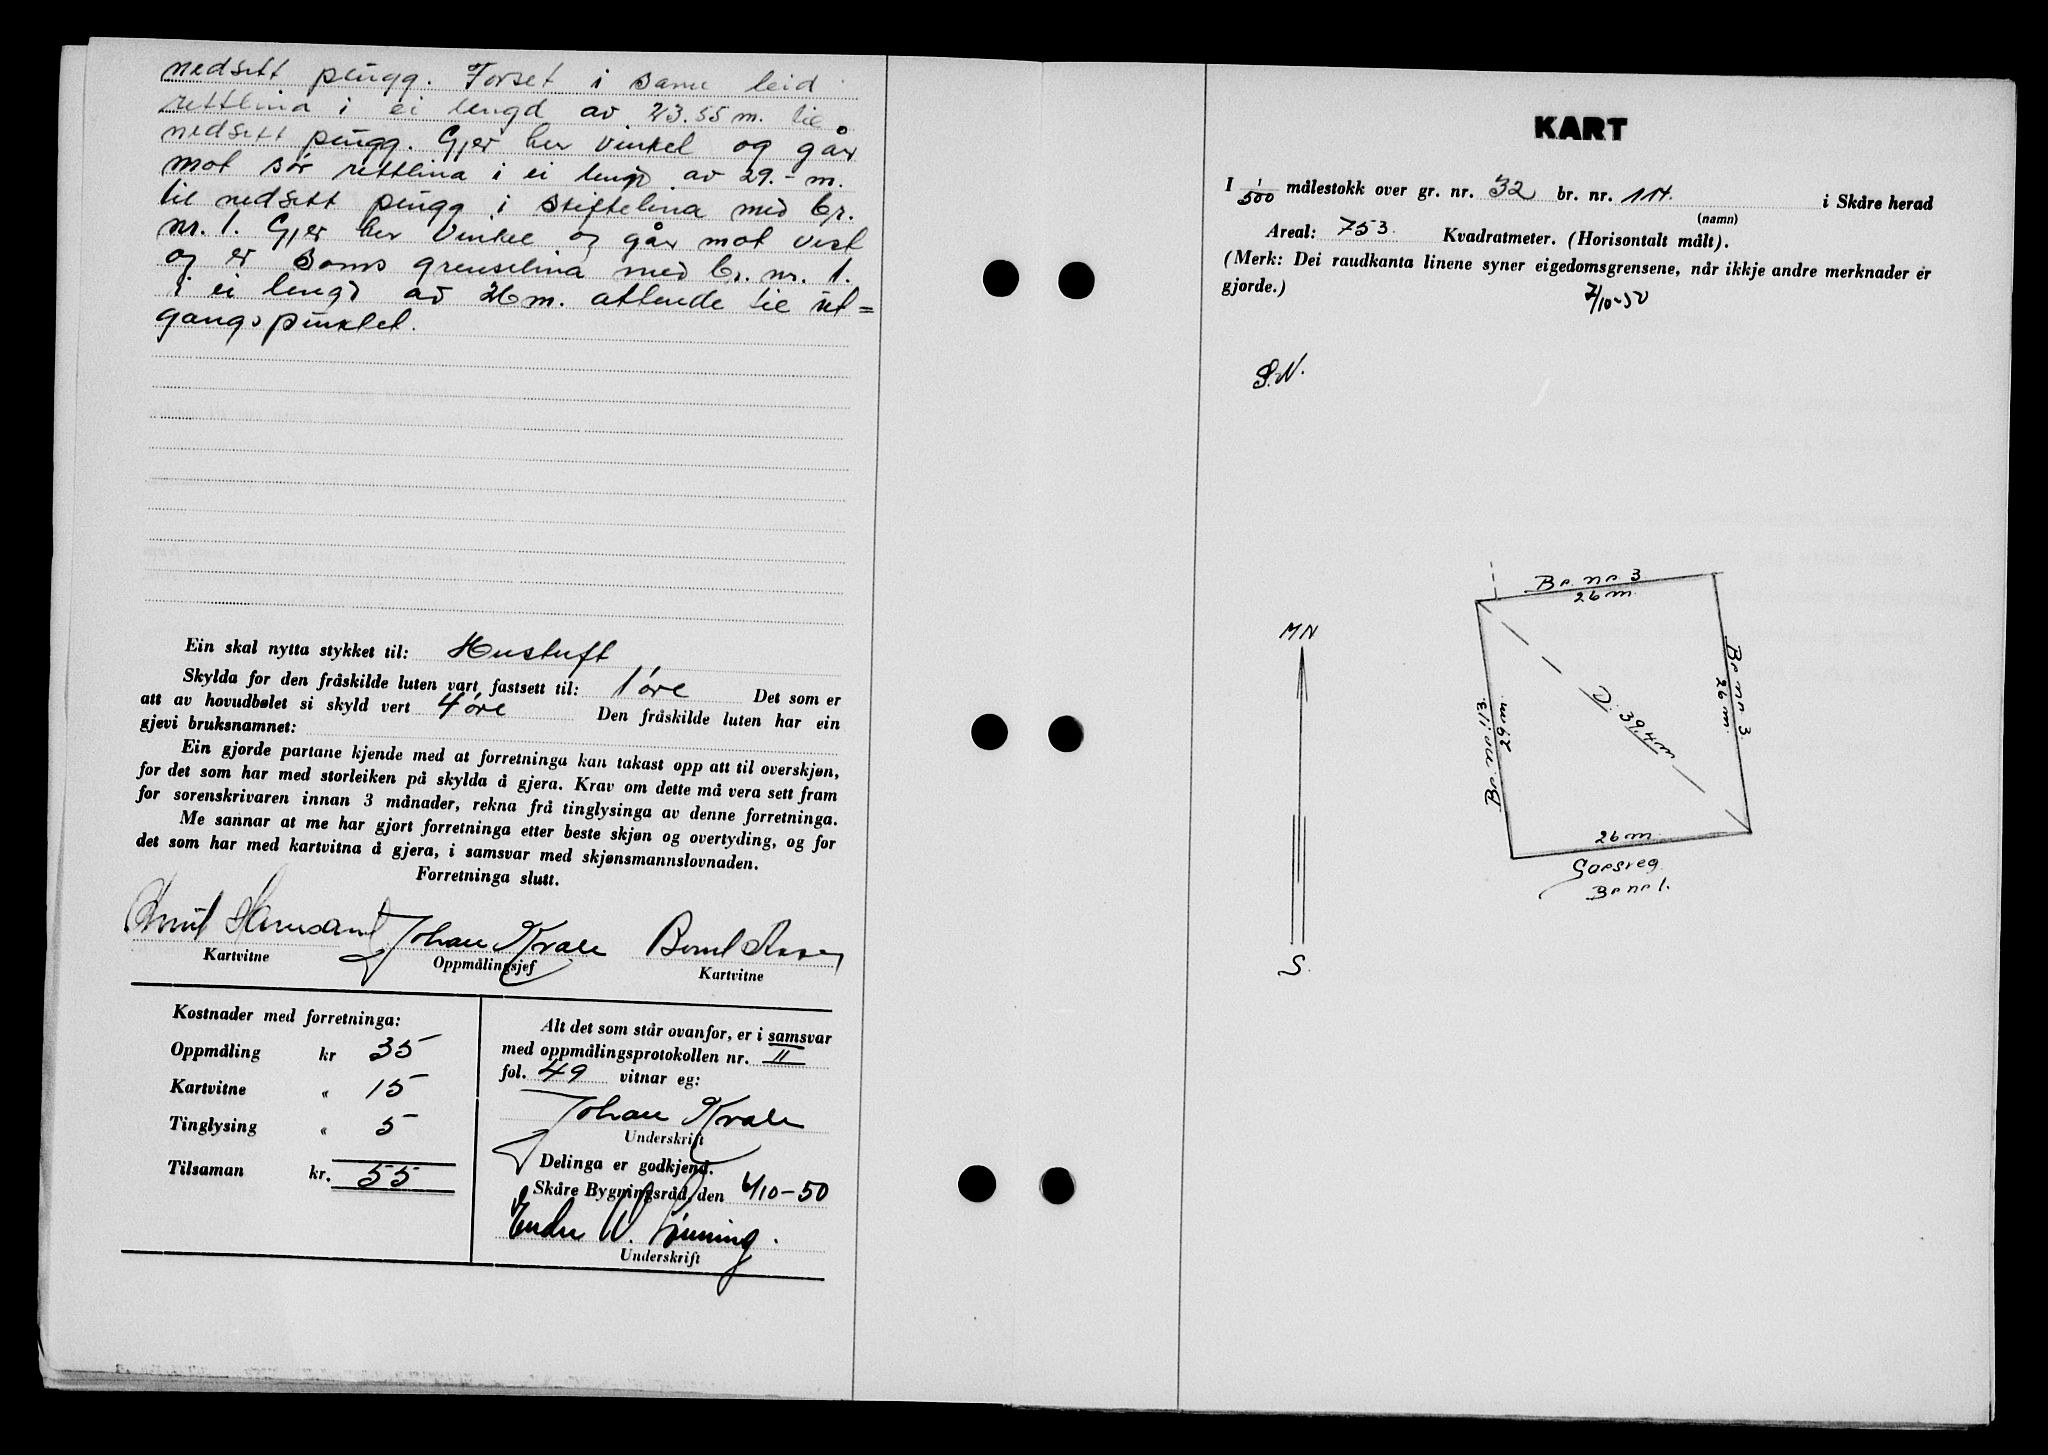 nedsett pûgg. Forset i same leid
rettlina i ei lengd av 23.55 m. til
nedsett pûgg. Gjer her vinkel og går
mot sør rettlina i ei lengd av 29.- m.
til nedsett pûgg i skiftelina med br.
nr. 1. Gjer her vinkel og går mot vest
og er sams grenselina med br. nr. 1.
i ei lengd av 26 m. attende til ut=
gangspunktet.
Ein skal nytta stykket til: Hustuft
Skylda for den fråskilde luten vart fastsett til: 1 øre Det som er
att av hovudbølet si skyld vert 4 øre Den fråskilde luten har ein
gjevi bruksnamnet:
Ein gjorde partane kjende med at forretninga kan takast opp att til overskjøn,
for det som har med storleiken på skylda å gjera. Krav om dette må vera sett fram
for sorenskrivaren innan 3 månader, rekna frå tinglysinga av denne forretninga.
Me sannar at me har gjort forretninga etter beste skjøn og overtyding, og for
det som har med kartvitna å gjera, i samsvar med skjønsmannslovnaden.
Forretninga slutt.
Johan Kvale
Kartvitne Oppmålingsjef Kartvitne
Kostnader med forretninga:
Oppmåling kr 35
Kartvitne " 15
Tinglysing " 5
Tilsaman kr. 55
Alt det som står ovanfor, er i samsvar
med oppmålingsprotokollen nr. II
fol. 49 vitnar eg:
Johan Kvale
Underskrift
Delinga er godkjend.
Skåre Bygningsråd, den 6/10-50
Endre W.
Underskrift
KART
I 1/500 målestokk over gr. nr. 32 br. nr. 114. i Skåre herad
(namn)
Areal: 753 Kvadratmeter. (Horisontalt målt).
(Merk: Dei raudkanta linene syner eigedomsgrensene, når ikkje andre merknader er
gjorde.)
7/10-50
S.N.
MN
S.
Br. nr. 3
26 m.
Br. nr. 3
26 m.
D. 39,4 m
Br. nr. 113
29 m
26 m.
Br nr 1.